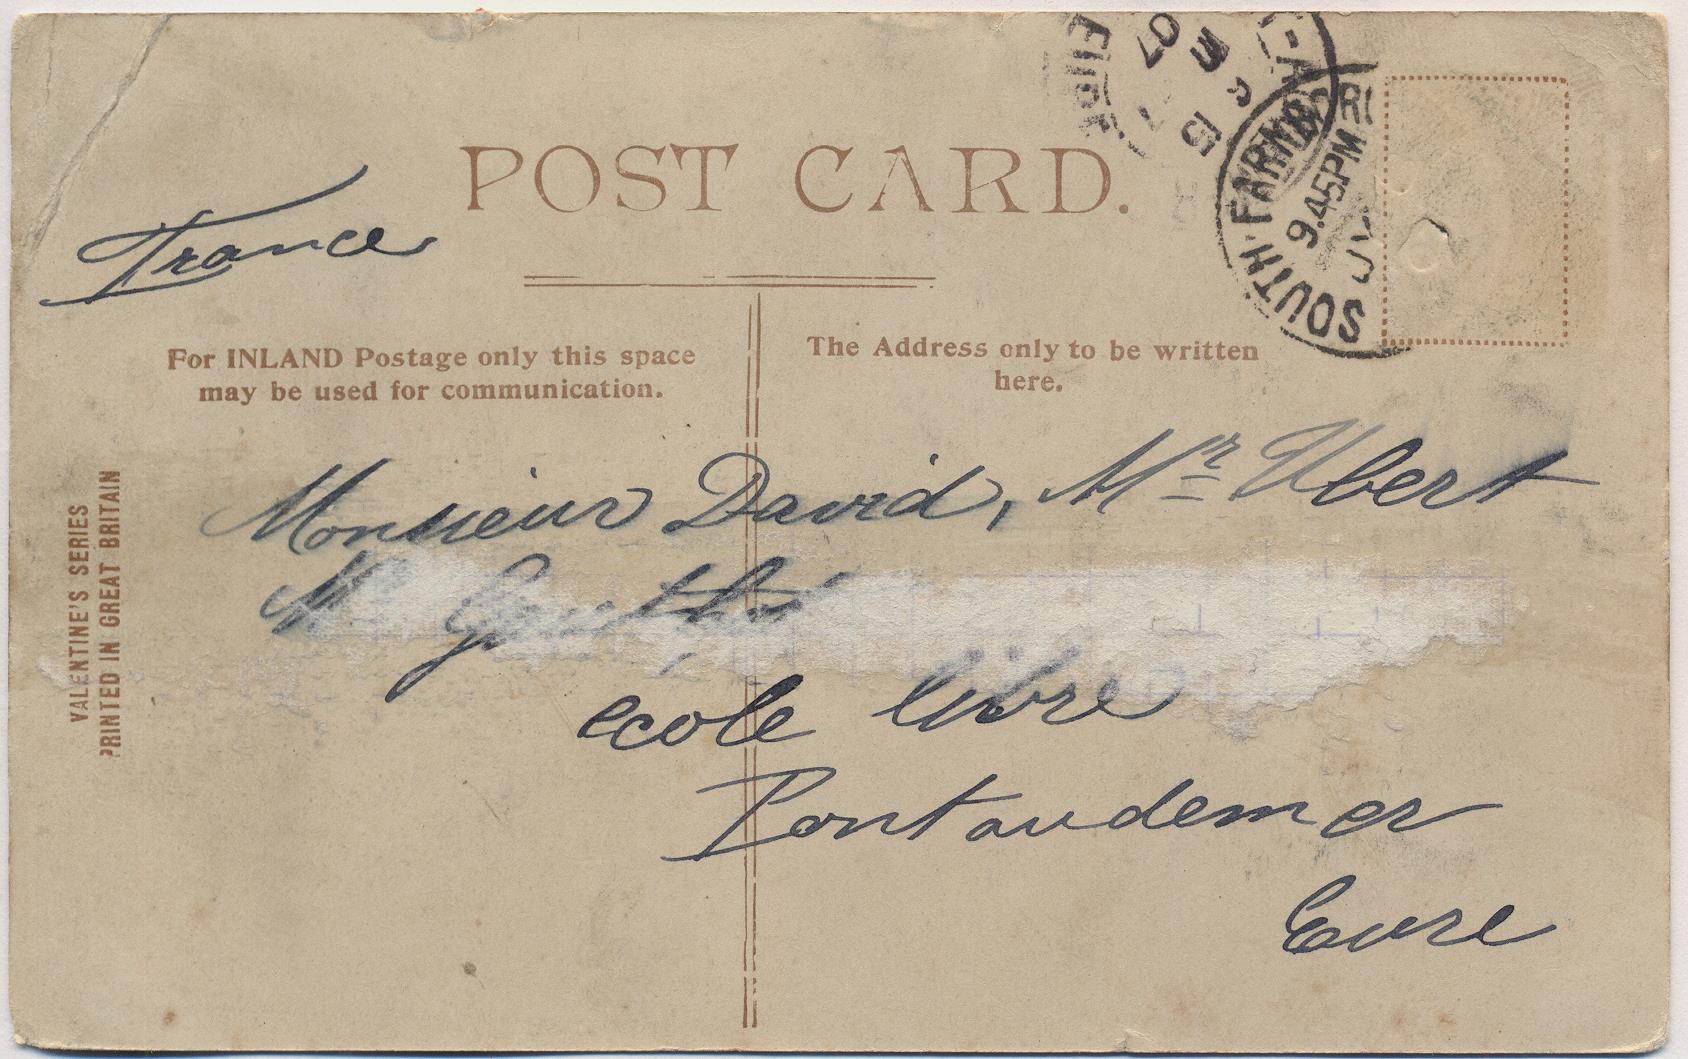 POST CARD.
France
For INLAND Postage only this space
may be used for communication.
The Address only to be written
here.
SOUTH FARNBOR
9.45PM
JY
15
07
VALENTINE'S SERIES
PRINTED IN GREAT BRITAIN
Monsieur David, Mr Ubert
M
ecole libre
Pontaudemer
Eure